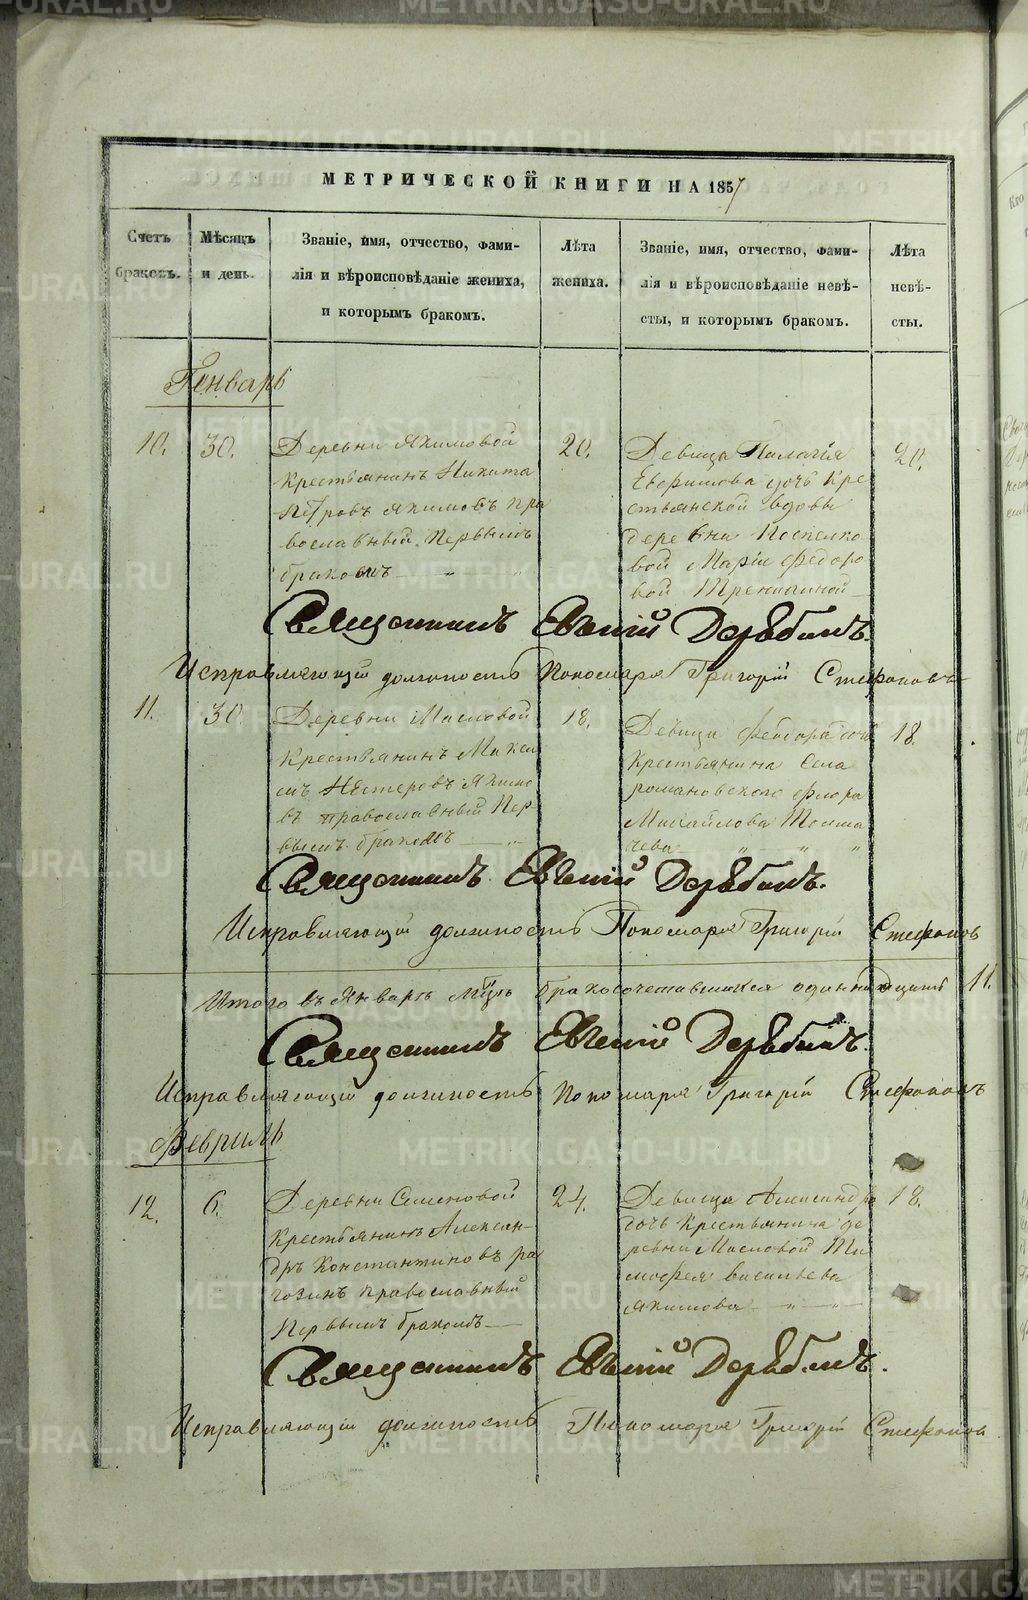 МЕТРИЧЕСКОЙ КНИГИ НА 1857
Счетъ браковъ.
Мѣсяцъ и день.
Званіе, имя, отчество, фами-
лія и вѣроисповѣданіе жениха,
и которымъ бракомъ.
Лѣта жениха.
Званіе, имя, отчество, фами-
лія и вѣроисповѣданіе невѣ-
сты, и которымъ бракомъ.
Лѣта невѣ-
сты.
Генварь
10.
30.
Деревни Якимовой
крестьянинъ Никита
Петровъ Якимовъ пра
вославный. Первымъ
бракомъ
20.
Девица Пилагія
Евфимова дочь кре
стьянской вдовы
деревни
вой Маріи Федоро
вой
20.
Священникъ Евгеній Дерябинъ.
Исправляющій должность Пономаря Григорій Стефановъ
11.
30.
Деревни Масловой
Крестьянинъ Макси
мъ Нестеровъ Якимо
въ православный Пер
вымъ бракомъ
18.
Девица Федора дочь
Крестьянина Села
романовского Флора
Михайлова Толма
чева
18.
Священникъ Евгеній Дерябинъ.
Исправляющій должность Пономаря Григорій Стефановъ
Итого въ Январѣ мцѣ бракосочетавшихся одинндцать 11.
Священникъ Евгеній Дерябинъ.
Исправляющій должность Пономаря Григорій Стефановъ
Февраль
12.
6.
Деревни Семеновой
Крестьянинъ Алексан-
дръ Константиновъ ра
гозинъ православный
Первымъ бракомъ
24.
Девица Александра
дочь Крестьянина де
ревни Масловой Ти
мофея Васильева
Якимова
18.
Священникъ Евгеній Дерябинъ.
Исправляющій должность Пономаря Григорій Стефановъ
METRIKI.GASO-URAL.RU